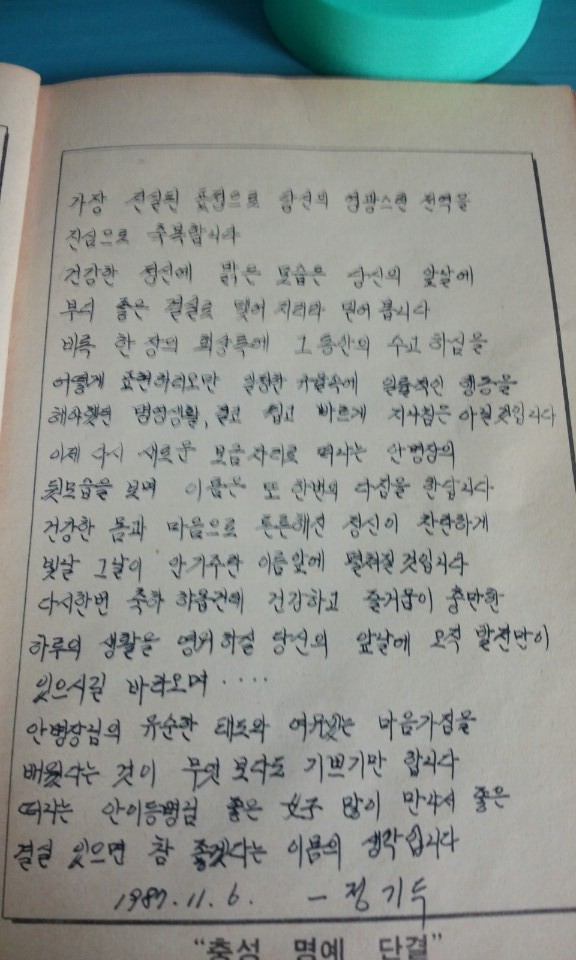 가장 진실된 표정으로 당신의 영광스런 전역을
진심으로 축복합니다
건강한 정신에 밝은 모습은 당신의 앞날에
부디 좋은 결실로 맺어 지리라 믿어 봅니다
비록 한 장의 회상록에 그 동안의 수고 하심을
어떻게 표현하리오만 일정한 생활속에 행동을
해야했던 병영생활, 결코 쉽고 바르게 지나침은 아닐 것입니다
이제 다시 새로운 보금자리로 떠나는 안병장의
뒷모습을 보며 이몸은 또 한번의 다짐을 한답니다
건강한 몸과 마음으로 튼튼해진 정신이 찬란하게
빛날 그날이 안기주란 이름앞에 펼쳐질것입니다
다시한번 축하 하옵건데 건강하고 즐거움이 충만한
하루의 생활을 영위하실 당신의 앞날에 오직 발전만이
있으시길 바라오며 ····
안병장님의 유순한 태도와 여유있는 마음가짐을
배웠다는 것이 무엇 보다도 기쁘기만 합니다
떠나는 안이등병님 좋은 女子 많이 만나서 좋은
결실 있으면 참 좋겠다는 이몸의 생각입니다
1987. 11. 6. - 정기득
"충성 명예 단결"